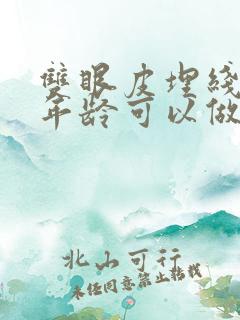 雙眼皮埋线
年龄可以做
北山可行
未经同意禁止转载